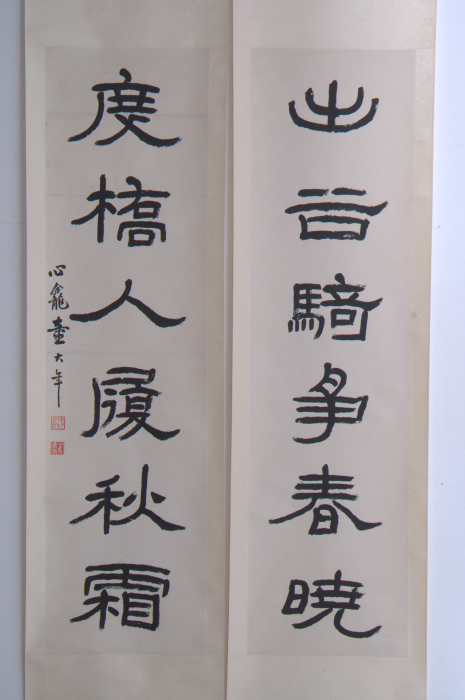 騎爭春曉
度橋人履秋霜
心龕童大年